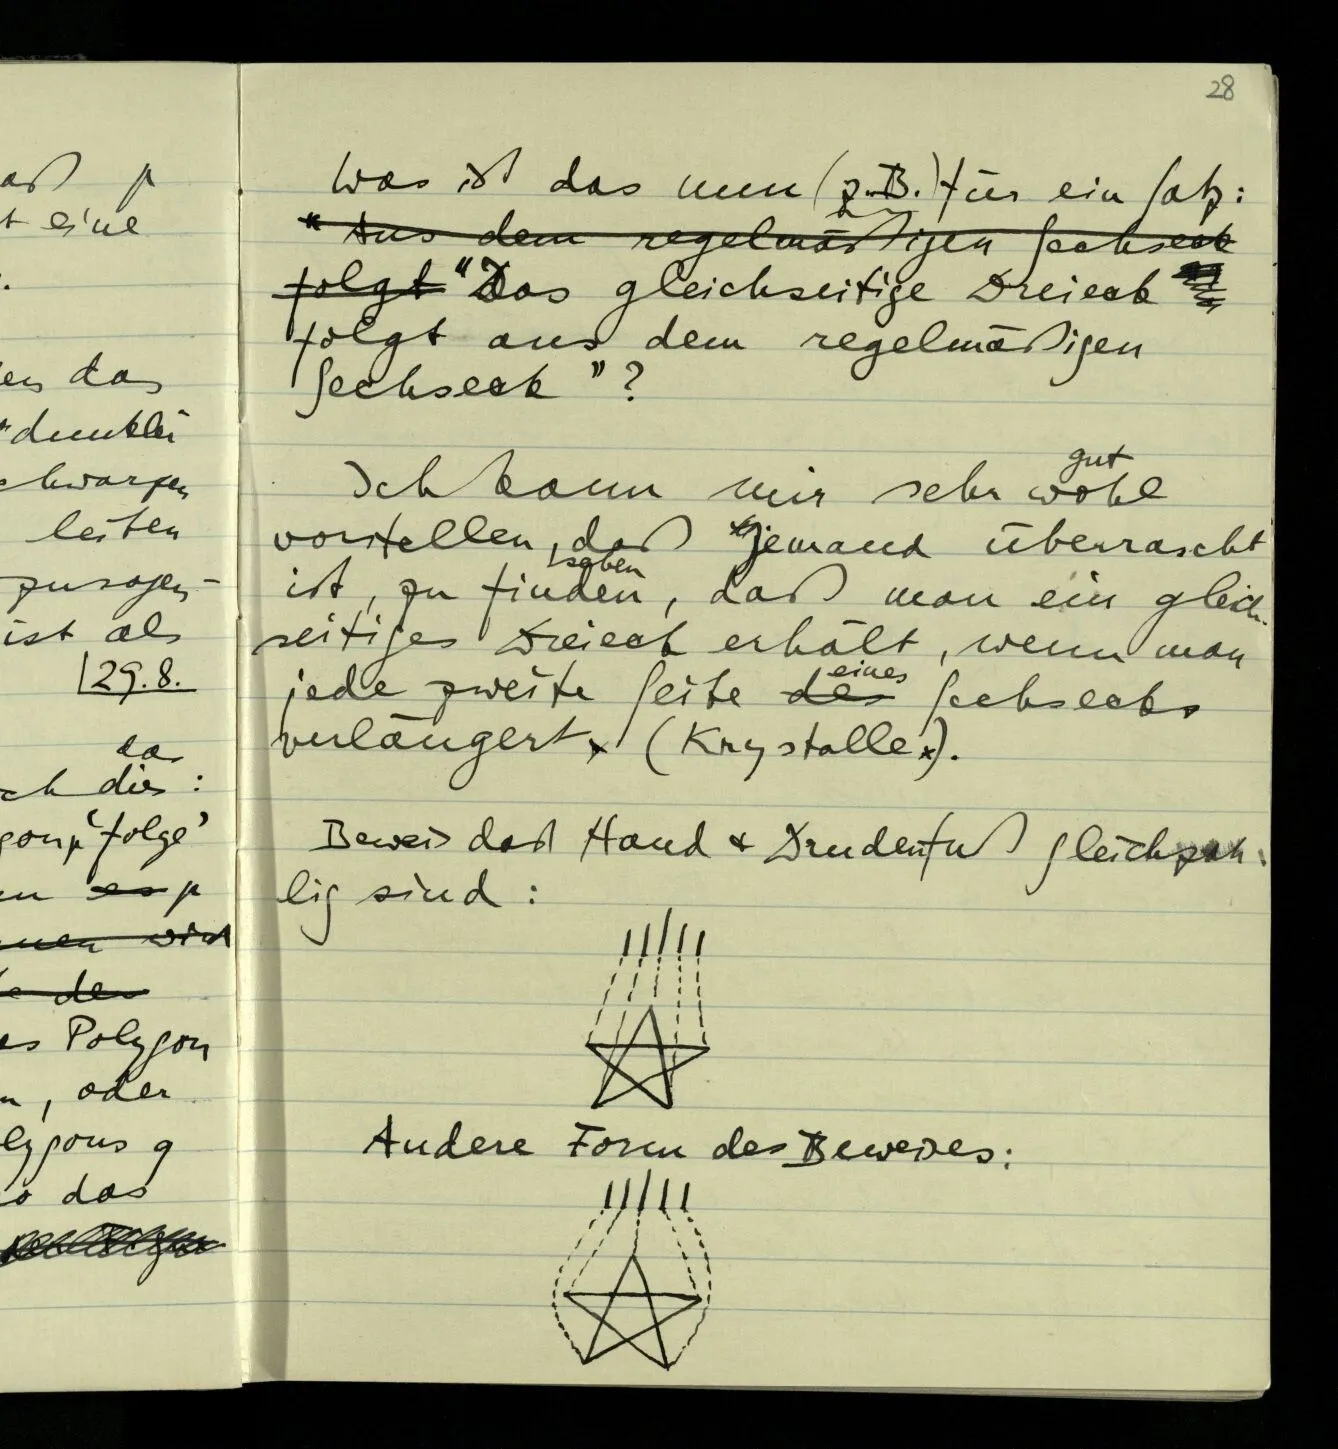 aß p
t eine
.
das
"dunkler
chwarzen
leiten
zusagen-
ist als
29.8.
das
ch dies :
gon p 'folge'
en es p
nnen wird
der
es Polygon
n, oder
olygons q
so das
28
Was ist das nun (z.B.) für ein Satz:
"Aus dem regelmäßigen Sechseck
folgt "Das gleichseitige Dreieck
folgt aus dem regelmäßigen
Sechseck"?
gut
Ich kann mir sehr wohl
vorstellen, daß jemand überrascht
sehen
ist, zu finden, daß man ein gleich-
seitiges Dreieck erhält, wenn man
eines
jede zweite Seite des Sechsecks
verlängert, (Krystalle).
Beweis daß Hand & Drudenfuß gleichzah-
lig sind :
Andere Form des Beweises: